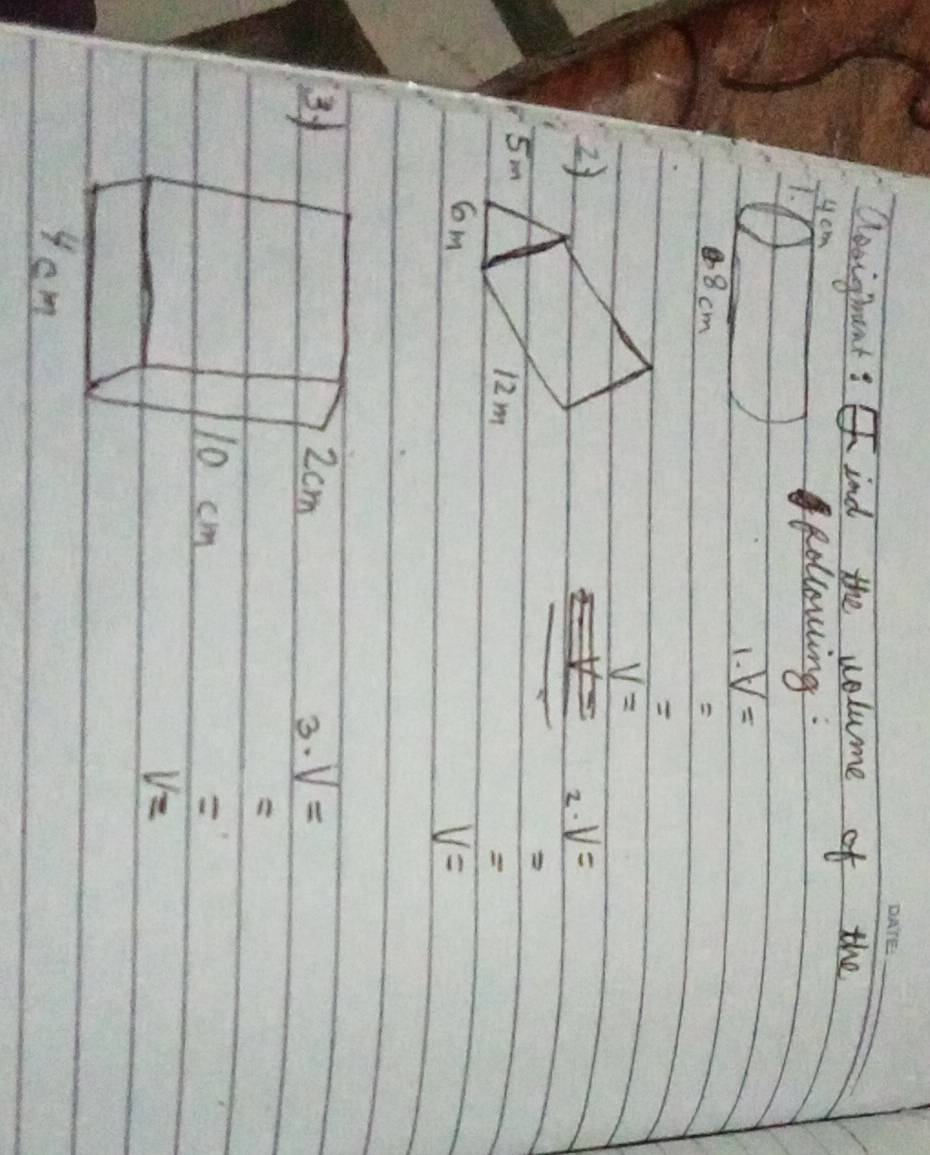 DATE:
Assigment : Find the volume of the
following :
1.
4cm
8cm
1. V =
=
=
V =
2)
5m
6m
12m
2. V =
=
=
V =
3)
2cm
10 cm
4cm
3. V =
=
=
V =